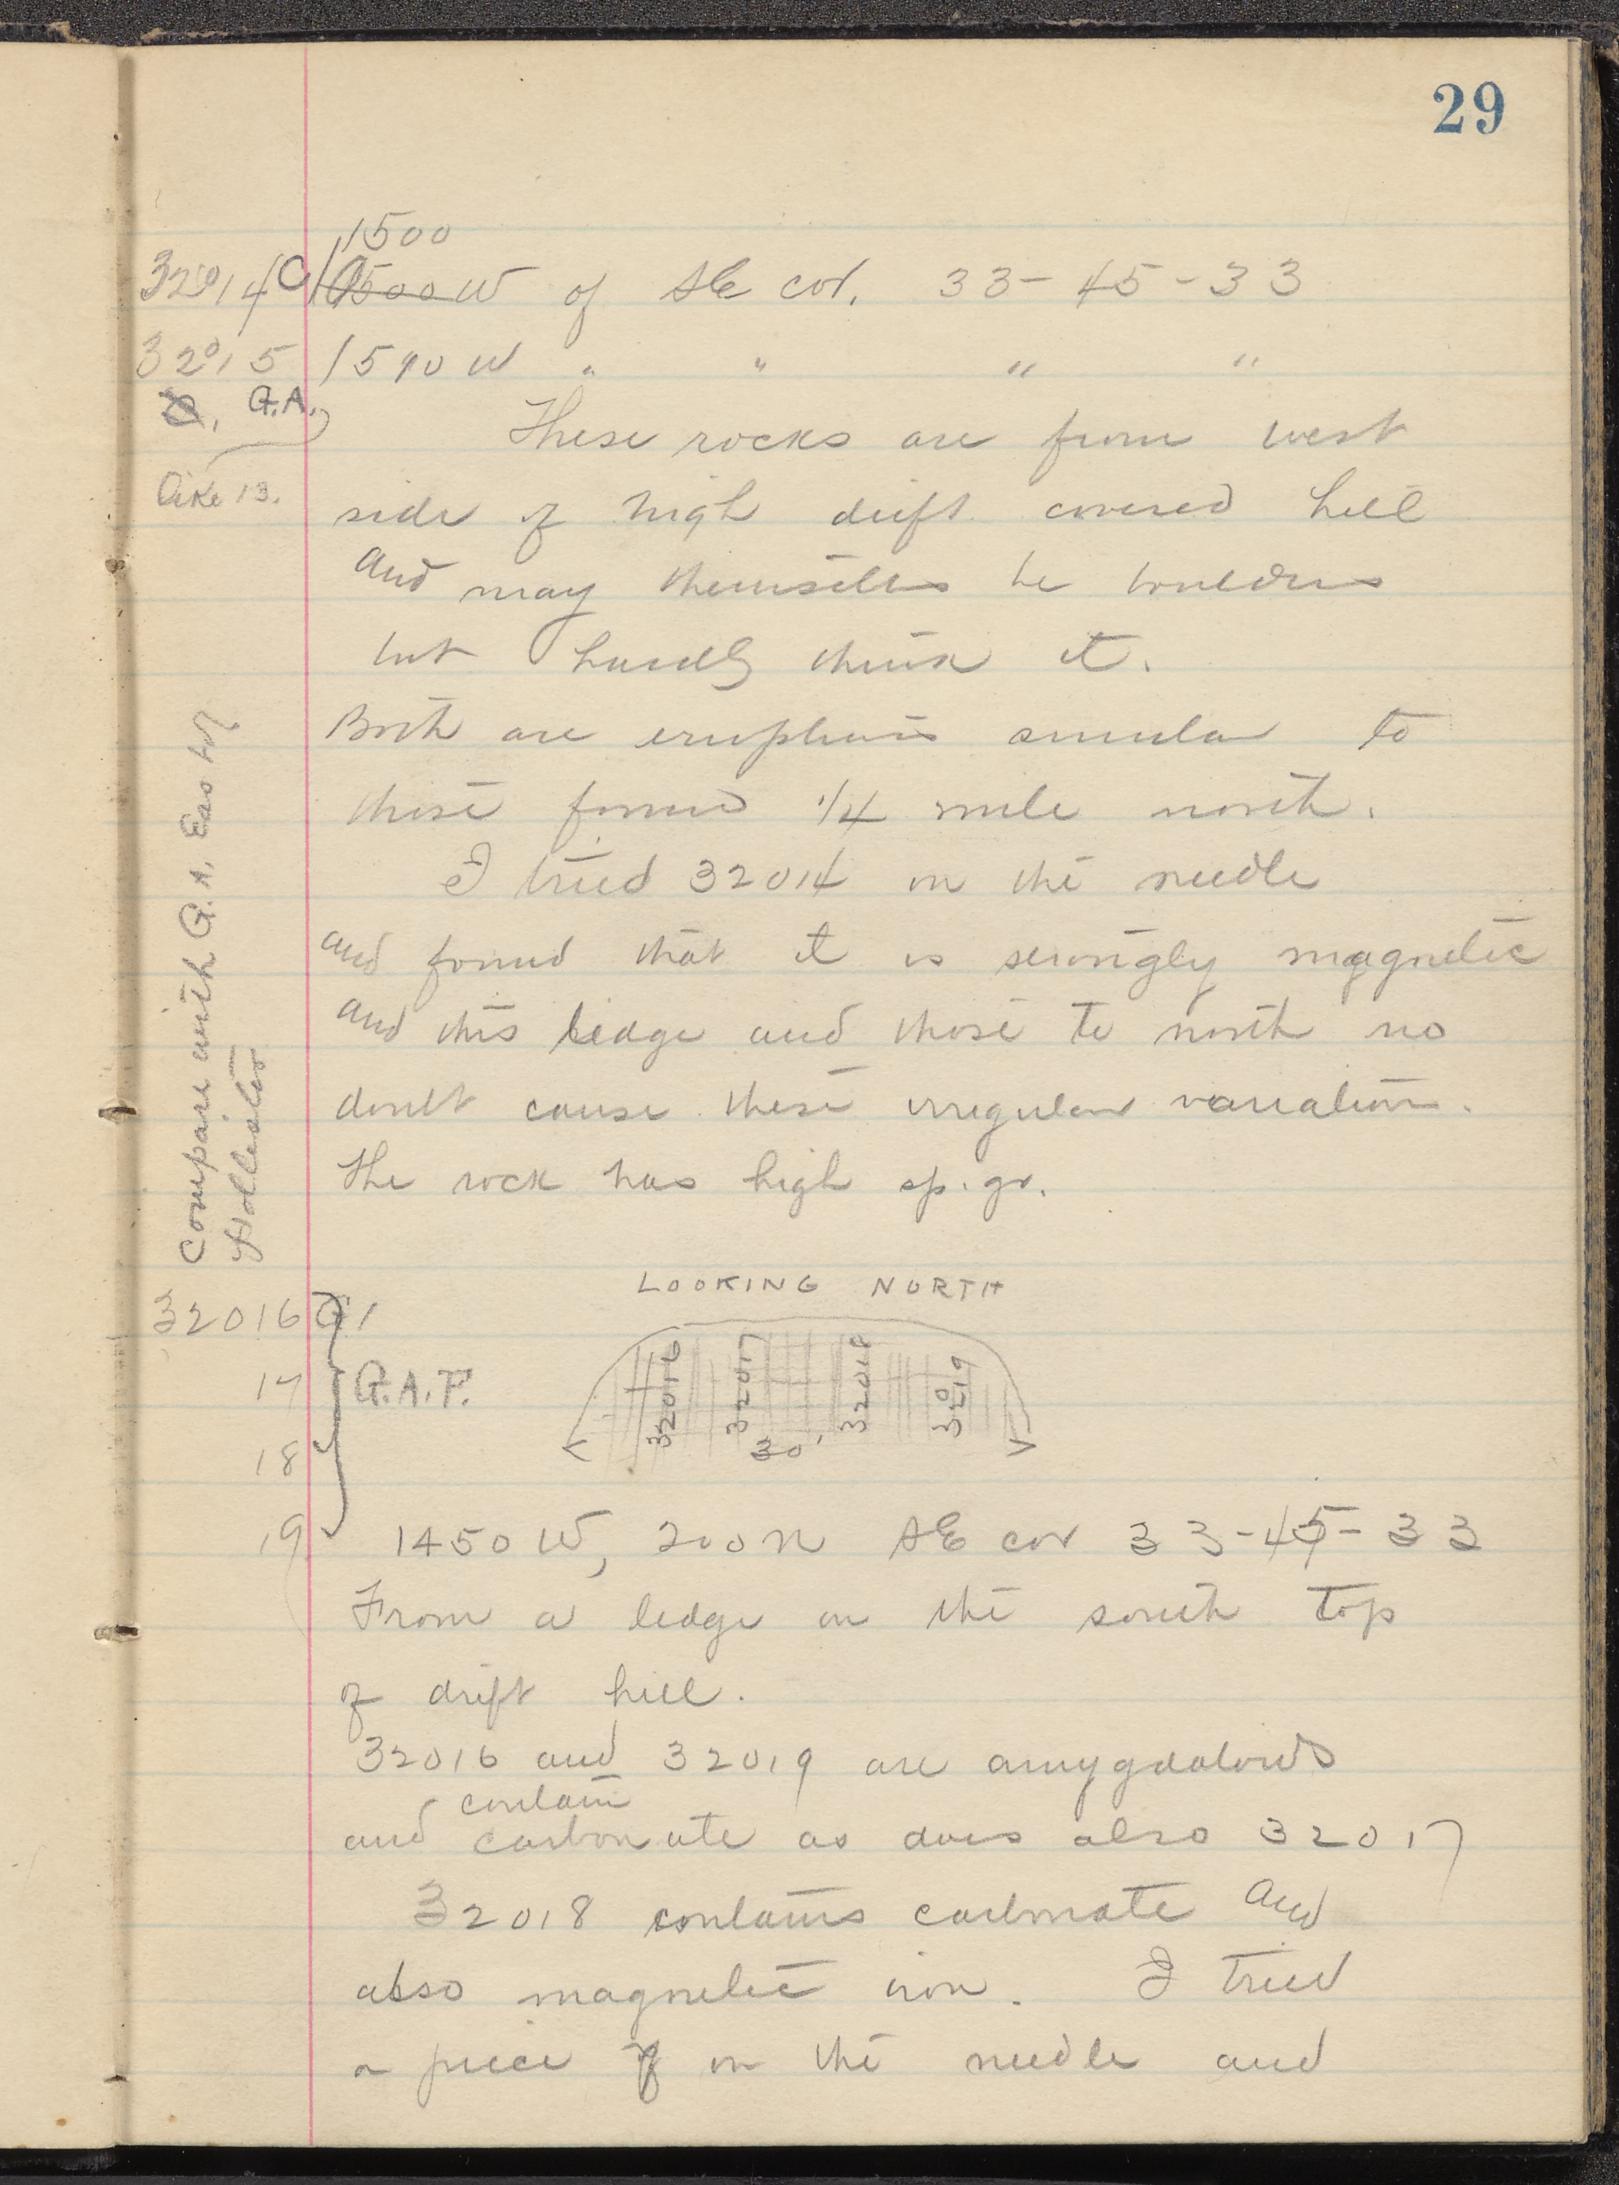 29
1500
32014 C 0500 W of SE cor. 33-45-33
32015 1590 W " " " "
D. G.A.
like 13.
These rocks are from west
side of high drift covered hill
and may themselves be boulders
but I hardly think it.
Both are eruptives similar to
those found 1/4 mile north.
I tried 32014 on the needle
and found that it is strongly magnetic
and this ledge and those to north no
doubt cause these irregular variations.
The rock has high sp. gr.
Compare with G.A. East of
Hollister
LOOKING NORTH
32016 G.
17 G.A.F.
18
19
32016 32017 32018 32019
30'
1450 W, 200 N SE cor 33-45-33
From a ledge on the south top
of drift hill.
32016 and 32019 are amygdaloids
contain
and carbonate as does also 32017
32018 contains carbonate and
also magnetic iron. I tried
a piece of on the needle and